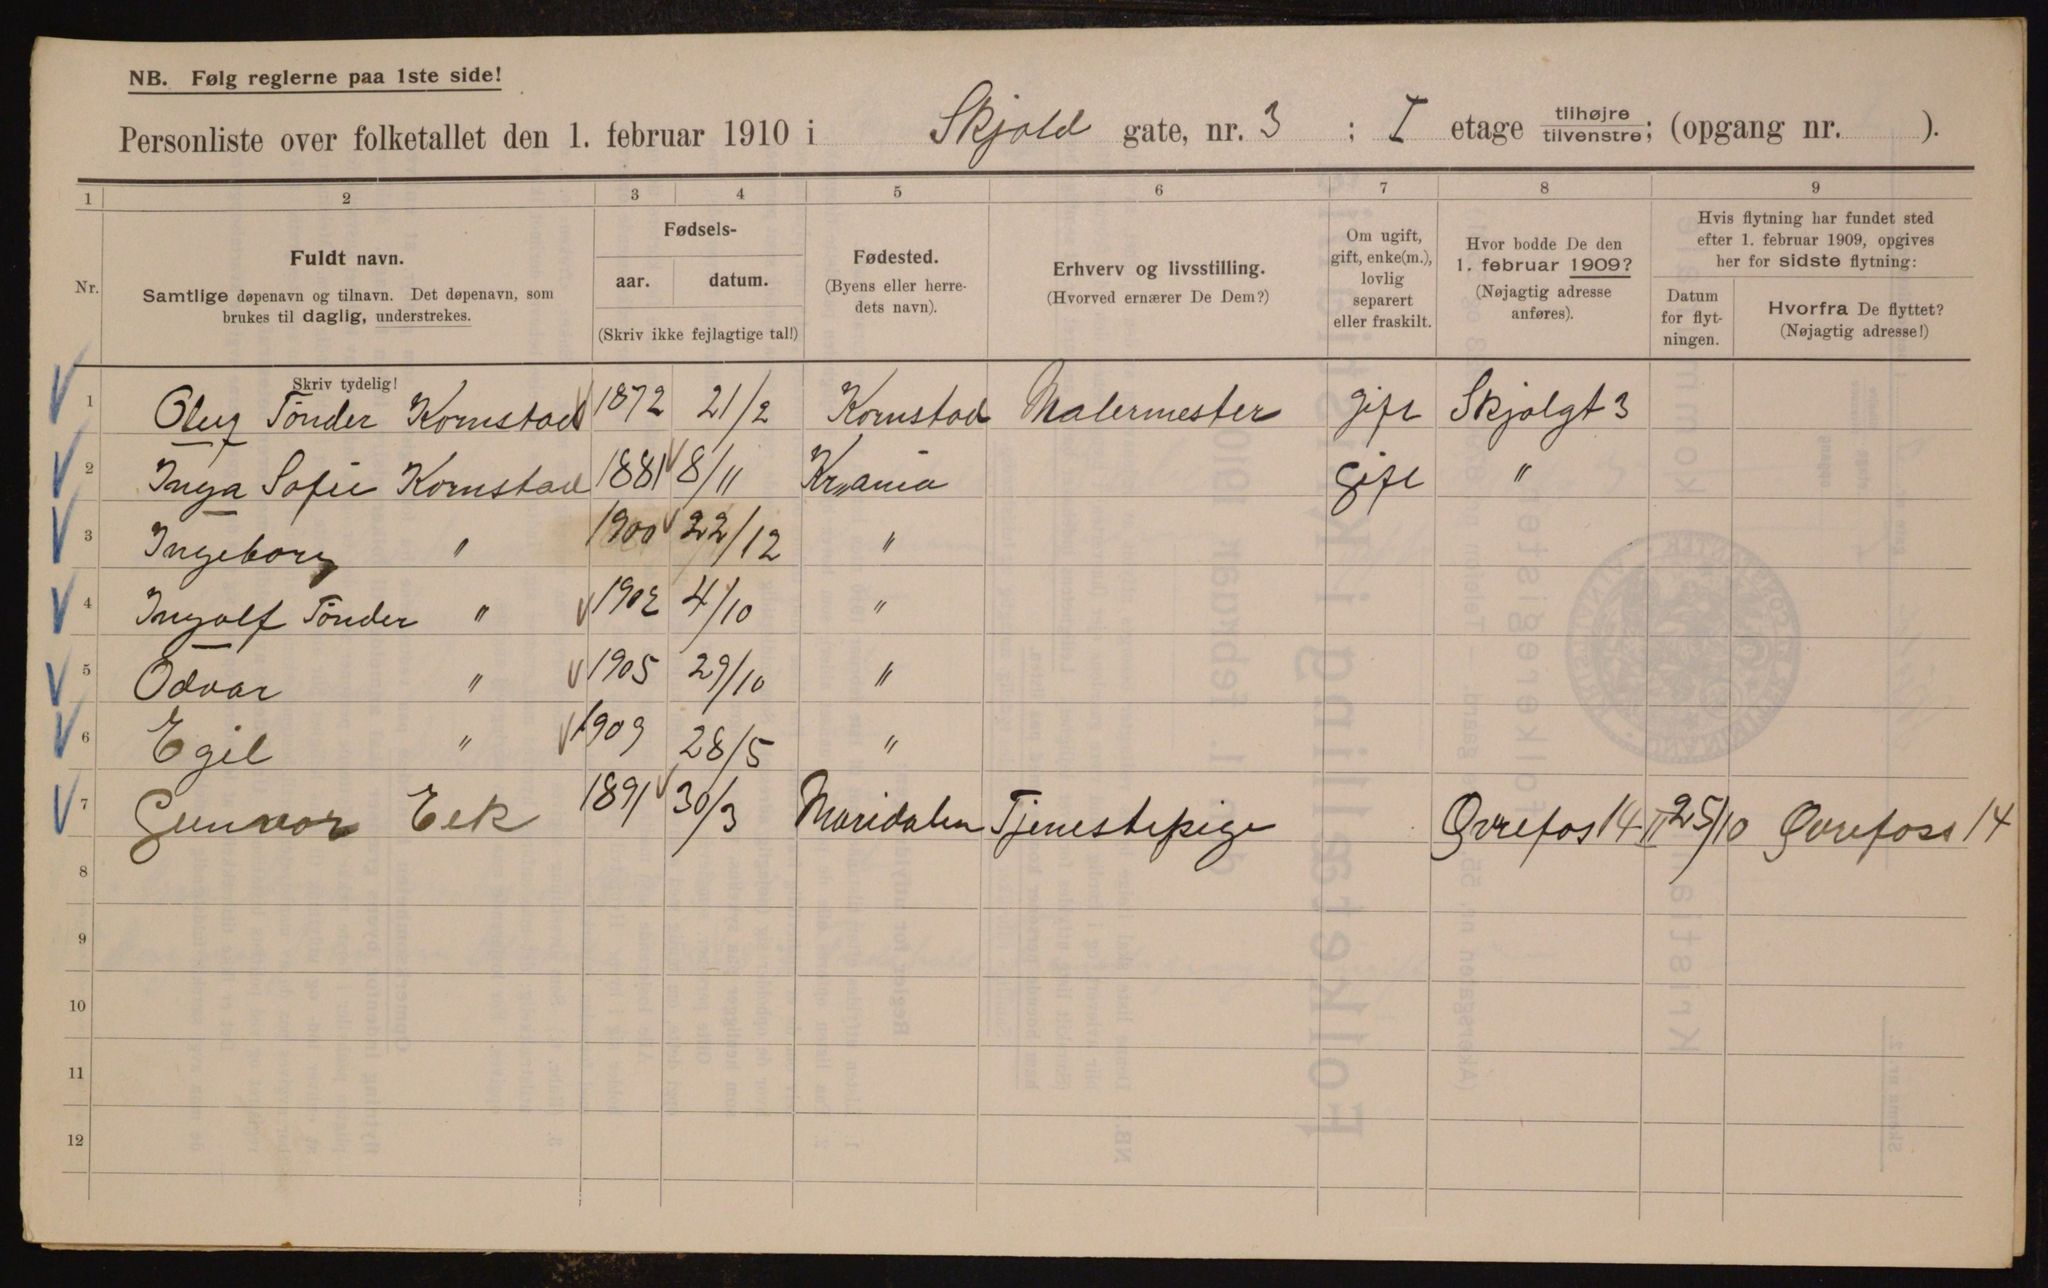 NB. Følg reglerne paa 1ste side!
Personliste over folketallet den 1. februar 1910 i Skjold gate, nr. 3 ; I etage tilhøjre tilvenstre; (opgang nr. ).
1 2 3 4 5 6 7 8 9
Nr.
Fuldt navn.
Samtlige døpenavn og tilnavn. Det døpenavn, som
brukes til daglig, understrekes.
Skriv tydelig!
Fødsels-
aar. datum.
(Skriv ikke fejlagtige tal!)
Fødested.
(Byens eller herre-
dets navn).
Erhverv og livsstilling.
(Hvorved ernærer De Dem?)
Om ugift,
gift, enke(m.),
lovlig
separert
eller fraskilt.
Hvor bodde De den
1. februar 1909?
(Nøjagtig adresse
anføres).
Hvis flytning har fundet sted
efter 1. februar 1909, opgives
her for sidste flytning:
Datum
for flyt-
ningen.
Hvorfra De flyttet?
(Nøjagtig adresse!)
1 Oluf Tönder Kornstad 1872 21/2 Kornstad Malermester gift Skjolgt 3
2 Inga Sofie Kornstad 1881 8/11 Kr„ania Gift "
3 Ingeborg " 1900 22/12 "
4 Ingolf Tönder " 1902 4/10 "
5 Odvar " 1905 29/10 "
6 Egil " 1909 28/5 "
7 Gunvor Eek 1891 30/3 Maridalen Tjenestepige Øvrefos 14 II 25/10 Øvrefoss 14
8
9
10
11
12